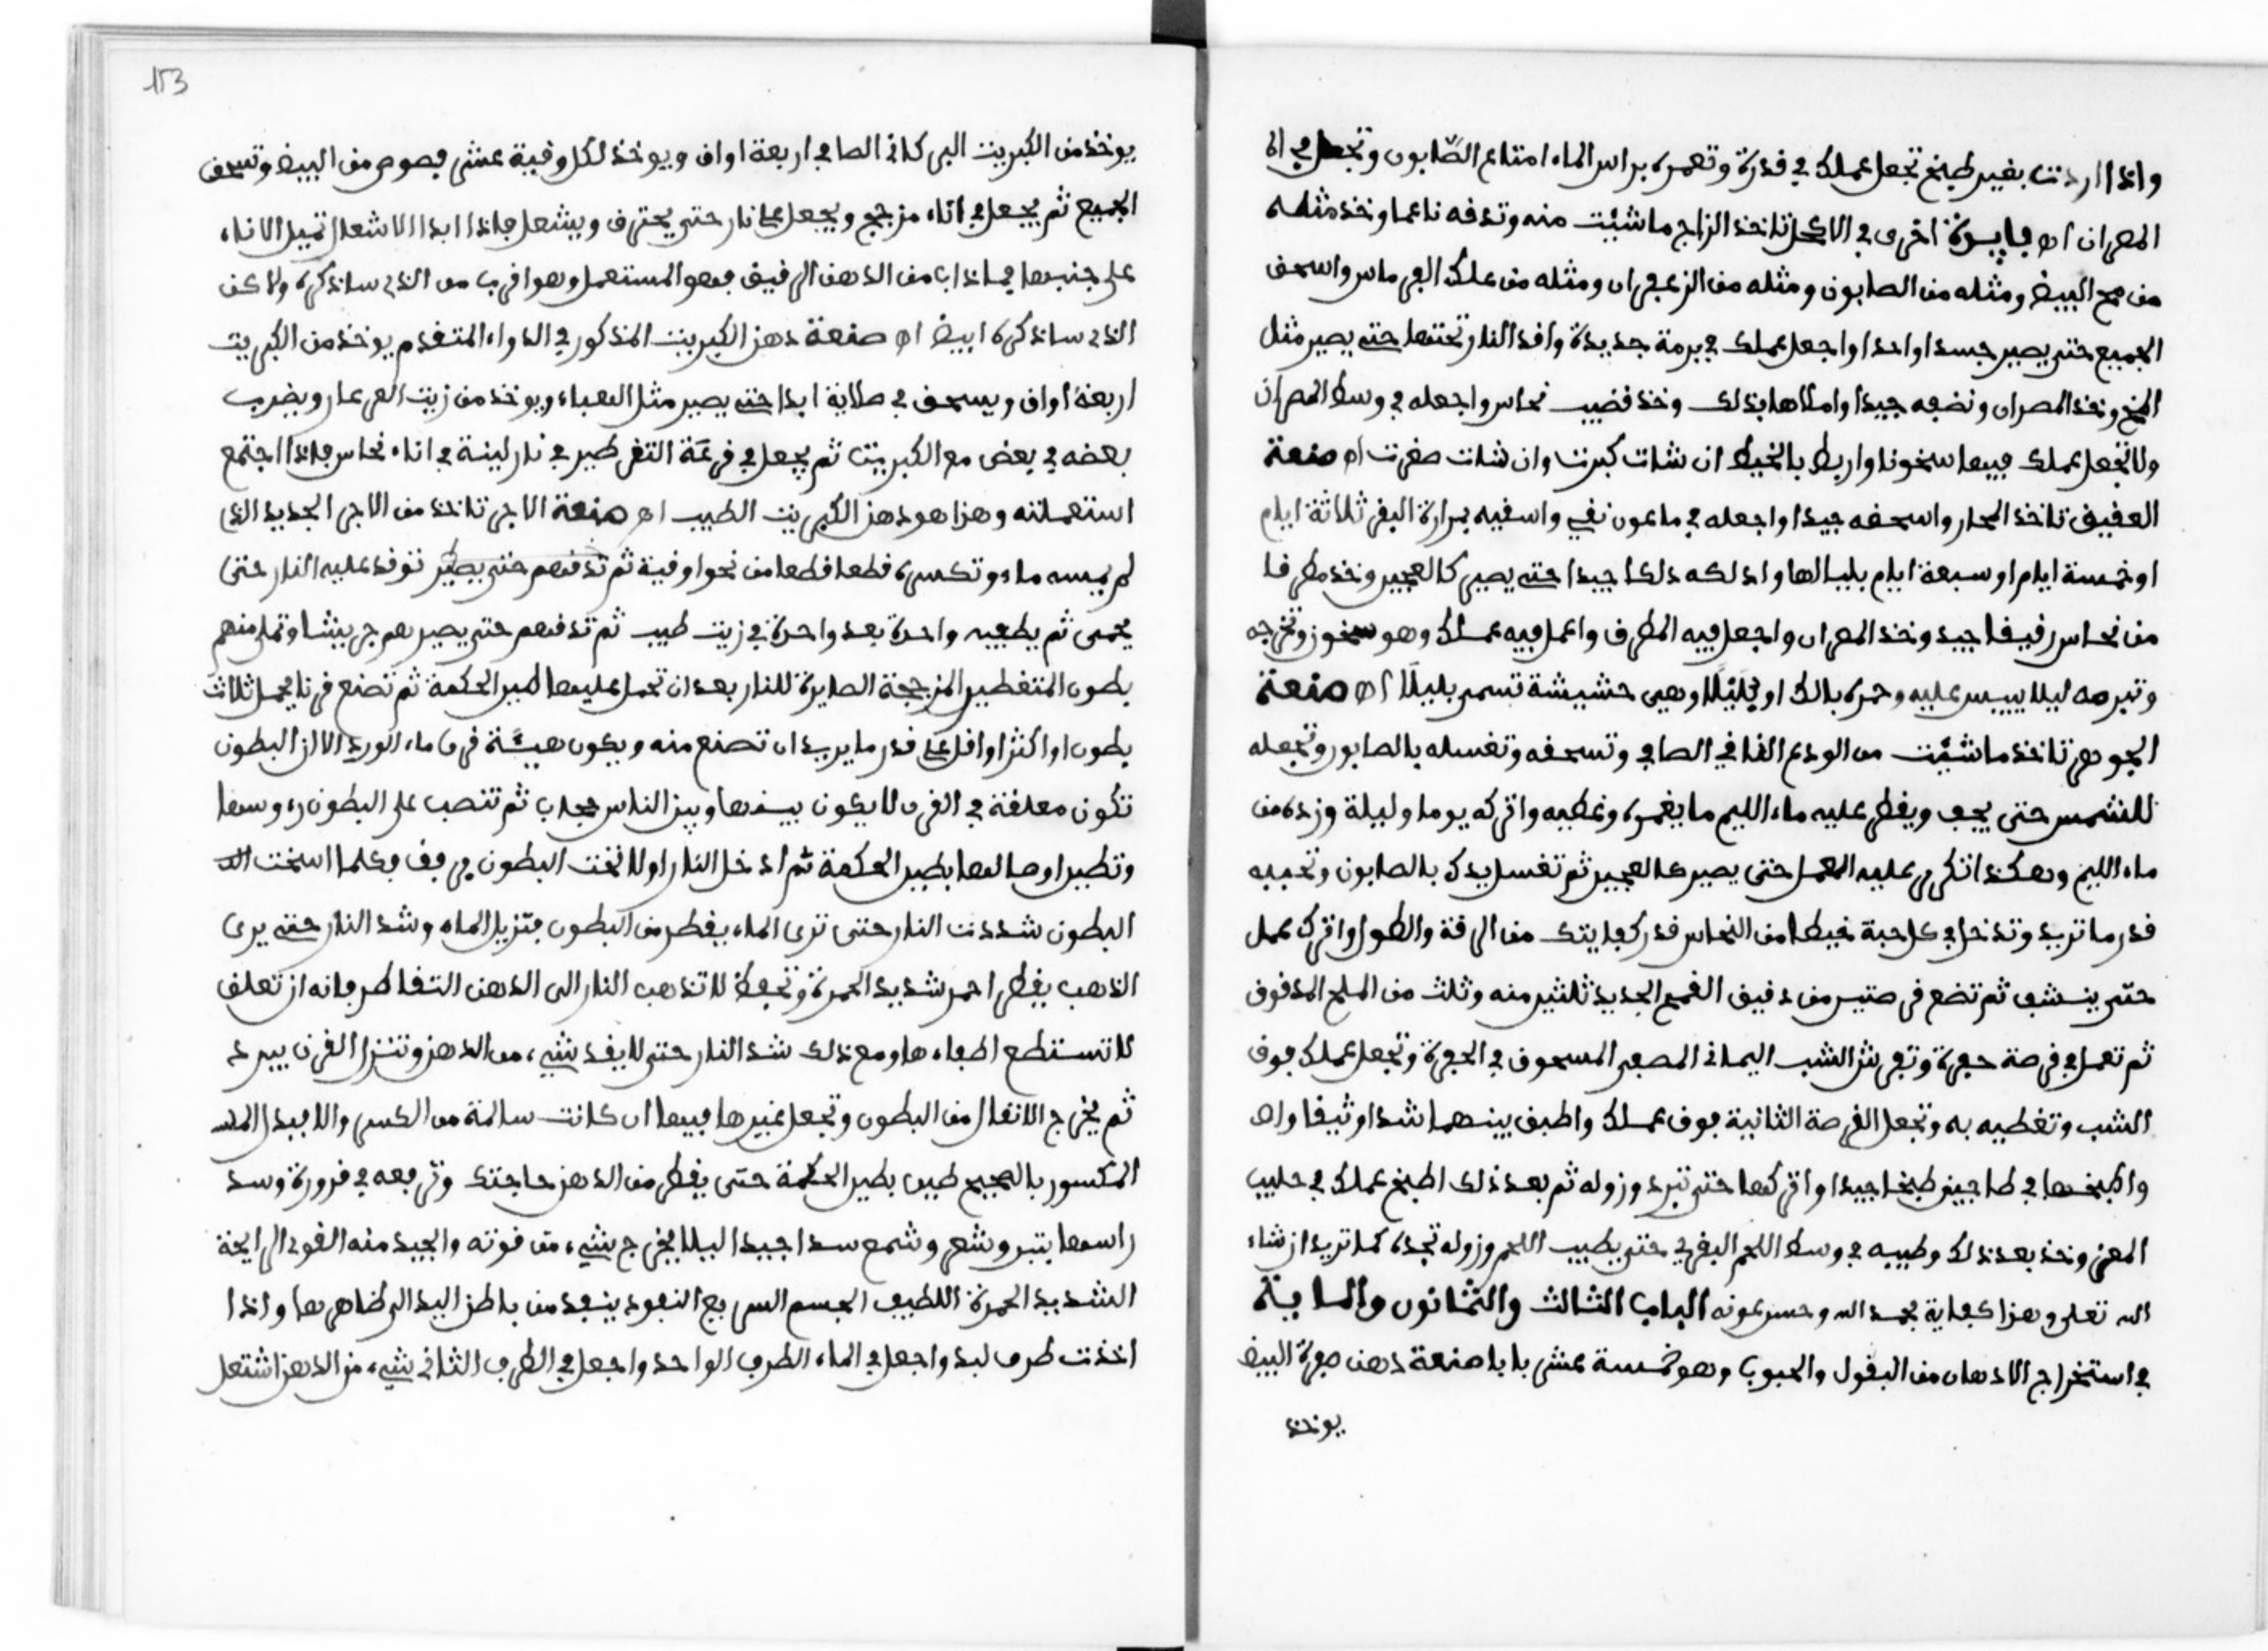 واذا اردت بغير طبخ تجعل عملك في قدرة وتعمره براس الماء امتاع الصّابون وتجعل في
المصران اه فايدة اخرى في الاكحل تاخذ الزاج ما شيئت منه وتدقه ناعما وخذ مثله
من مح البيض ومثله من الصابون ومثله من الزعفران ومثله من علك واسحق
الجميع حتى يصير جسدا واحدا واجعل عملك في برمة جديدة واقد النار تحتها حتى يصير مثل
المخ وخذ المصران ونضفه جيدا واملاها بذلك وخذ قضيب نحاس واجعله في وسط المصران
ولا تجعل عملك فيها سخونا واربط بالخيط ان شات كبرت وان شات صغرت اه صنعة
العقيق تاخذ المحار واسحقه جيدا واجعله في ماعون نقي واسقيه بمرارة البقر ثلاثة ايام
او خمسة ايام او سبعة ايام بليالها وادلكه دلكا جيدا حتى يصير كالعجين وخذ مطرقا
من نحاس رقيقا جيد وخذ المصران واجعل فيه المطرق واعمل فيه عملك وهو سخون وتخرجه
وتبرمه ليلا ييبس عليه وحمره بالك او وهي حشيشة تسمى بليلًا اه صنعة
الجوهر تاخذ ما شيّت من الودع النقي الصافي وتسحقه وتغسله بالصابون وتجعله
للشمس حتى يجف ويقطر عليه ماء الليم ما يغمره وغطيه واتركه يوما وليلة وزده من
ماء الليم وهكذا تكرر عليه العمل حتى يصير كالعجين ثم تغسل يدك بالصابون وتحببه
قدر ما تريد وتدخل في كل حبة خيطا من النحاس قدر كفايتك من الرقة والطول واترك عملك
حتى ينشف ثم تضع قرصتين من دقيق القمح الجديد ثلثين منه وثلث من الملح المدقوق
ثم تعمل في قرصة حفرة وتفرش الشب اليماني المصفى المسحوق في الحفرة وتجعل عملك فوق
الشب وتغطيه به وتجعل القرصة الثانية فوق عملك واطبق بينهما شدا وثيقا
واطبخها في طاجين طبخا جيدا واتركها حتى تبرد وزوله ثم بعد ذلك اطبخ عملك في حليب
المعز وخذ بعد ذلك وطيبه في وسط اللحم البقري حتى يطيب اللحم وزوله تجده كما تريد ان شاء
الله تعلى وهذا كفاية بحمد الله وحسن عونه الباب الثالث والثمانون والماية
في استخراج الادهان من البقول والحبوب وهو خمسة عشر بابا صنعة دهن صفرة البيض
يوخذ
153
يوخذ من الكبريت الصافي اربعة اواق ويوخذ لكل وقية عشر فصوص من البيض وتسحق
الجميع ثم يجعل في اناء مزجج ويجعل على نار حتى يحترق ويشعل فاذا ابدا الاشعال تميل الاناء
على جنبها فما ذاب من الدهن الرقيق فهو المستعمل وهو اقرب من الذي ساذكره ولاكن
الذي ساذكره ابيض اه صنعة دهن الكبريت المذكور في الدواء المتقدم يوخذ من الكبريت
اربعة اواق ويسحق في صلاية ابدا حتى يصير مثل الهباء ويوخذ من زيت العرعار ويضرب
بعضه في بعض مع الكبريت ثم يجعل في قرعة التقطير في نار لينة في اناء نحاس فاذا اجتمع
استعملته وهذا هو دهن الكبريت الطيب اه صنعة الاجر تاخذ من الاجر الجديد الذي
لم يمسه ماء وتكسره قطعا قطعا من نحو اوقية ثم توقد عليه النار حتى
يحمى ثم يطفيه واحدة بعد واحدة في زيت طيب ثم تدقهم حتى يصيرهم جريشا وتملي منهم
بطون المتقطير المزججة الصابرة للنار بعد ان تحمل عليها طين الحكمة ثم تصنع فرنا يحمل ثلاث
بطون او اكثر او اقل على قدر ما يريد ان تصنع منه ويكون هيئة فرن ماء الورد الا ان البطون
تكون معلقة في الفرن لا يكون بينها وبين الناس حجاب ثم تنصب على البطون رءوسها
وتطين اوصالها بطين الحكمة ثم ادخل النار اولا تحت البطون برفق وكلما اسخنت
البطون شددت النار حتى ترى الماء يقطر من البطون فتزيل الماء وشد النار حتى يرى
الذهب يقطر احمر شديد الحمرة وتحفظ لا تذهب النار الى الدهن التقاطر فانه ان تعلق
لا تستطع اطفاءها ومع ذلك شد النار حتى لا يقد شيء من الدهن وتنزل الفرن يبرد
ثم يخرج الاثقال من البطون وتجعل غيرها فيها ان كانت سالمة من الكسر والا فبدل
المكسور بالصحيح طين بطين الحكمة حتى يقطر من الدهن حاجتك وترفعه في قرورة وسد
راسها بتبر وشعر وشمع سدا جيدا ليلا يخرج شيء من قوته والجيد منه القوي الرايحة
الشديد الحمرة اللطيف الجسم السريع النفود ينفد من باطن اليد الى ظاهرها واذا
اخذت طرف لبد واجعل في الماء الطرف الواحد واجعل في الطرف الثاني شيء من الدهن اشتعل